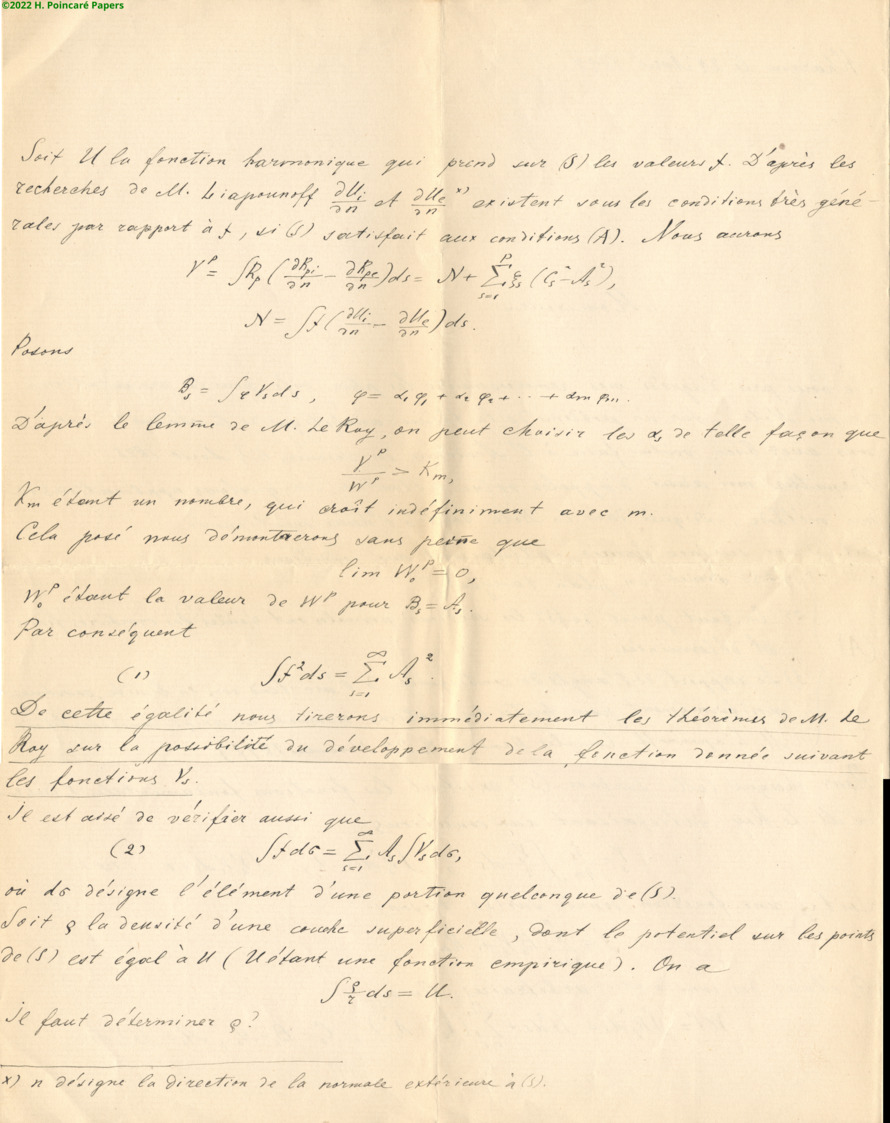 ©2022 H. Poincaré Papers
Soit U la fonction harmonique qui prend sur (S) les valeurs f. D'après les
recherches de M. Liapounoff ∂Ui/∂n et ∂Ue/∂n x) existent sous les conditions très géné-
rales par rapport à f, si (S) satisfait aux conditions (A). Nous aurons
V^p = ∫Rp(∂Rpi/∂n − ∂Rpe/∂n)ds = N + Σ_{s=1}^{p} ξs (Cs² − As²),
N = ∫f(∂Ui/∂n − ∂Ue/∂n)ds.
Posons
Bs = ∫φVsds, φ = α1φ1 + α2φ2 + ··· + αmφm.
D'après le lemme de M. Le Roy, on peut choisir les αs de telle façon que
V^p/W^p > Km,
Km étant un nombre, qui croît indéfiniment avec m.
Cela posé nous démontrerons sans peine que
lim W0^p = 0,
W0^p étant la valeur de W^p pour Bs = As.
Par conséquent
(1) ∫f²ds = Σ_{s=1}^{∞} As².
De cette égalité nous tirerons immédiatement les théorèmes de M. Le
Roy sur la possibilité du développement de la fonction donnée suivant
les fonctions Vs.
Il est aisé de vérifier aussi que
(2) ∫fdσ = Σ_{s=1}^{∞} As∫Vsdσ,
où dσ désigne l'élément d'une portion quelconque de (S).
Soit ρ la densité d'une couche superficielle, dont le potentiel sur les points
de (S) est égal à U (U étant une fonction empirique). On a
∫ρ/r ds = U.
Il faut déterminer ρ?
x) n désigne la direction de la normale extérieure à (S).